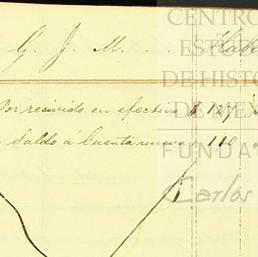 G. J. M. Habe
CENTRO
ESTU
DE HISTO
DE MEX
Por recibido en efectivo $ 127
Saldo á Cuenta nueva " 110
FUNDA
Carlos